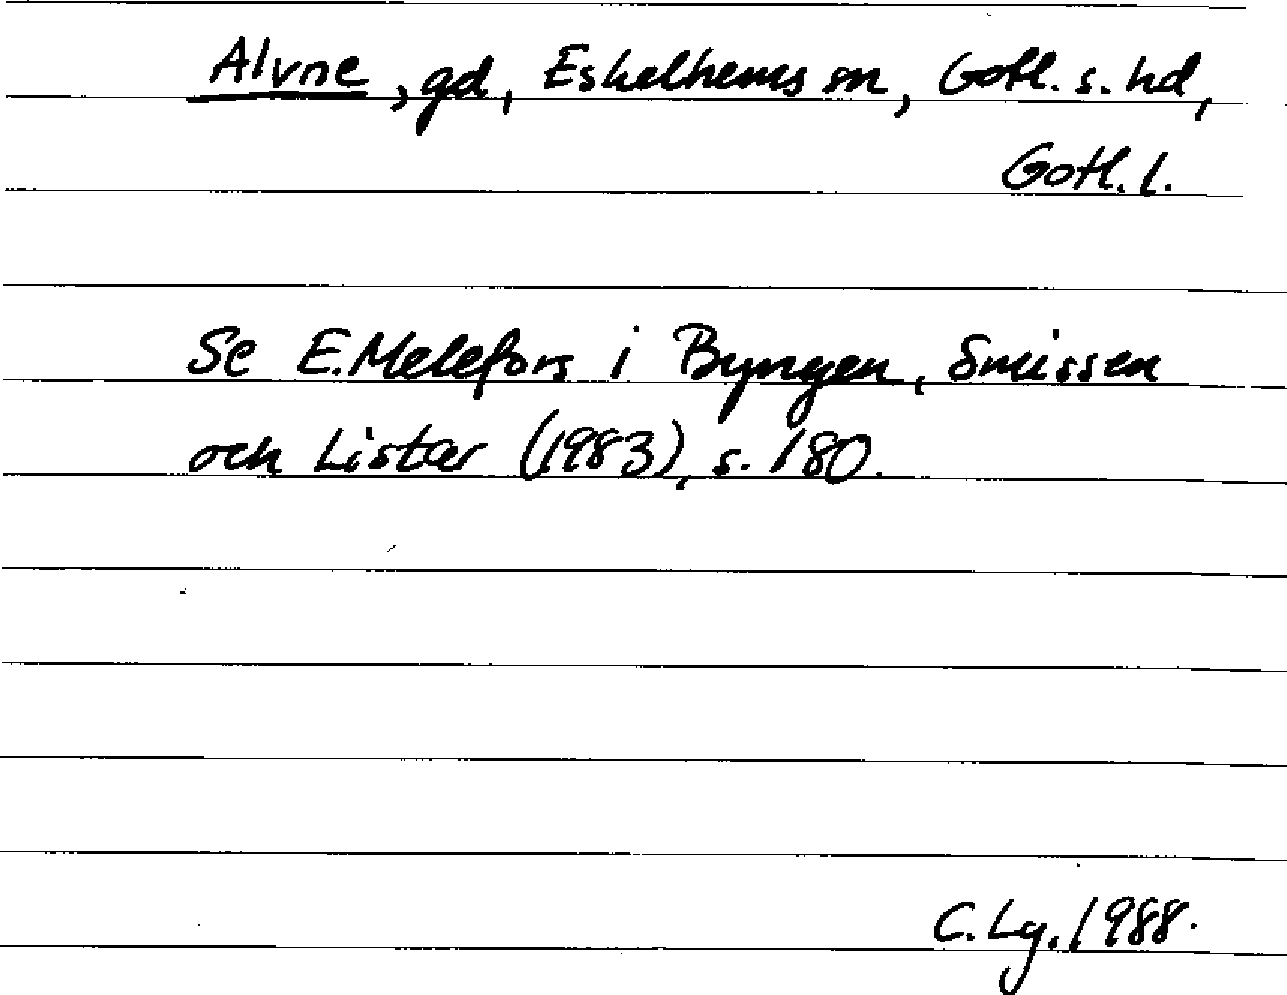 Alvne, gd, Eskelhems sn, Gotl. s. hd,
Gotl. l.
Se E. Melefors i Byngen, Smissen
och Lister (1983), s. 180.
C. Lg. 1988.